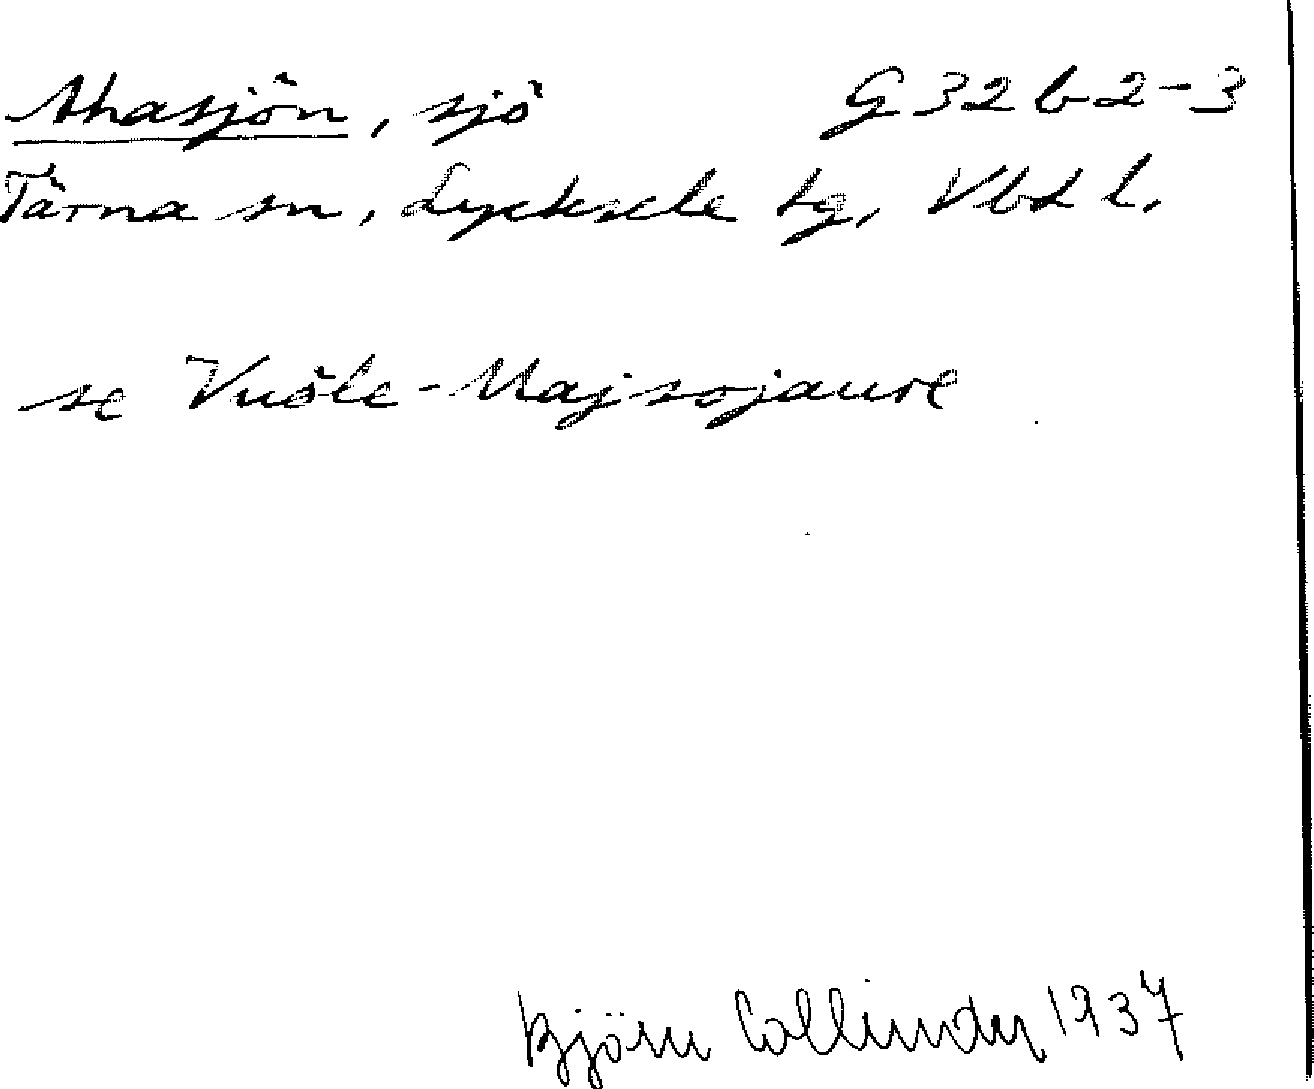 Ahasjön, sjö G 32 b 2-3
Tärna sn, Lycksele tg, Vbtl.
se Vuöle-Majsojaure
Björn Collinder 1937